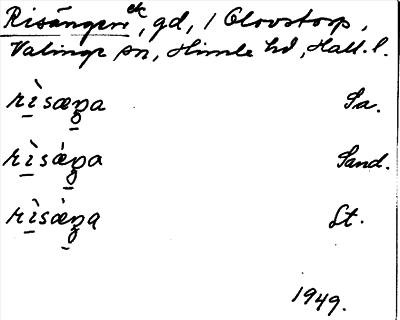 Risängen ek, gd, 1 Olovstorp,
Valinge sn, Himle hd, Hall. l.
rìsæŋa Sa.
rìsæ̀ŋa Sand.
rìsæ̀ŋa St.
1949.